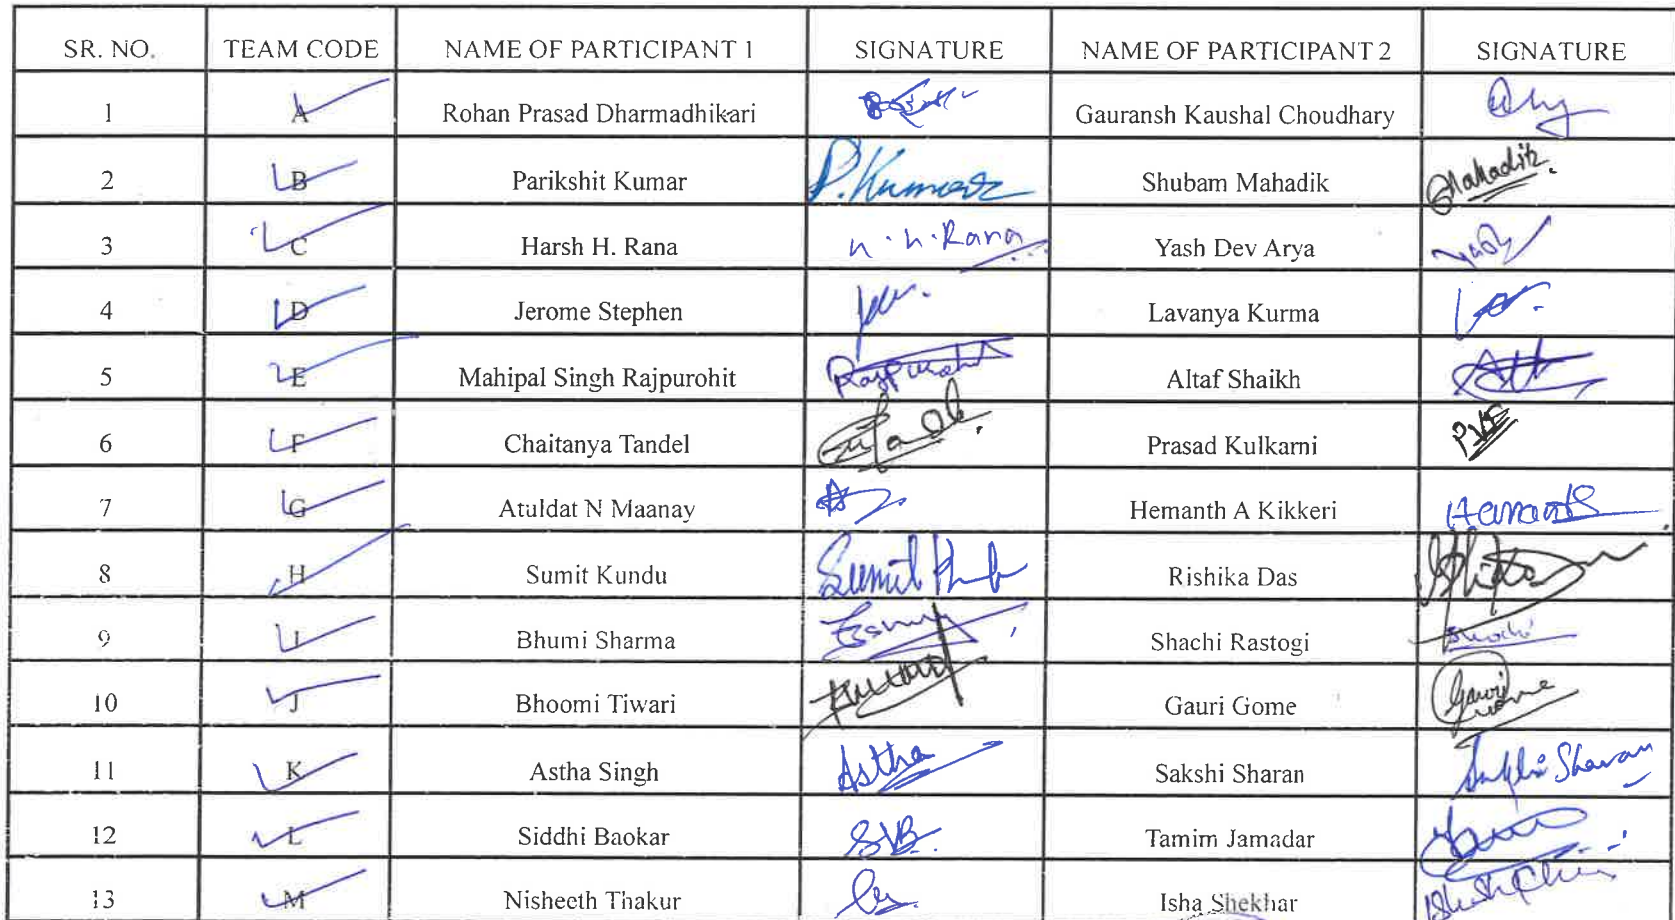 SR. NO. TEAM CODE NAME OF PARTICIPANT 1 SIGNATURE NAME OF PARTICIPANT 2 SIGNATURE
1 A Rohan Prasad Dharmadhikari Gauransh Kaushal Choudhary
2 B Parikshit Kumar P. Kumar Shubam Mahadik Mahadik
3 C Harsh H. Rana h. h. Rana Yash Dev Arya Yash
4 D Jerome Stephen Lavanya Kurma
5 E Mahipal Singh Rajpurohit Rajpurohit Altaf Shaikh
6 F Chaitanya Tandel Prasad Kulkarni
7 G Atuldat N Maanay Hemanth A Kikkeri
8 H Sumit Kundu Sumit Rishika Das
9 I Bhumi Sharma Shachi Rastogi Shachi
10 J Bhoomi Tiwari Gauri Gome Gauri
11 K Astha Singh Astha Sakshi Sharan Sakshi Sharan
12 L Siddhi Baokar SVB. Tamim Jamadar
13 M Nisheeth Thakur Isha Shekhar